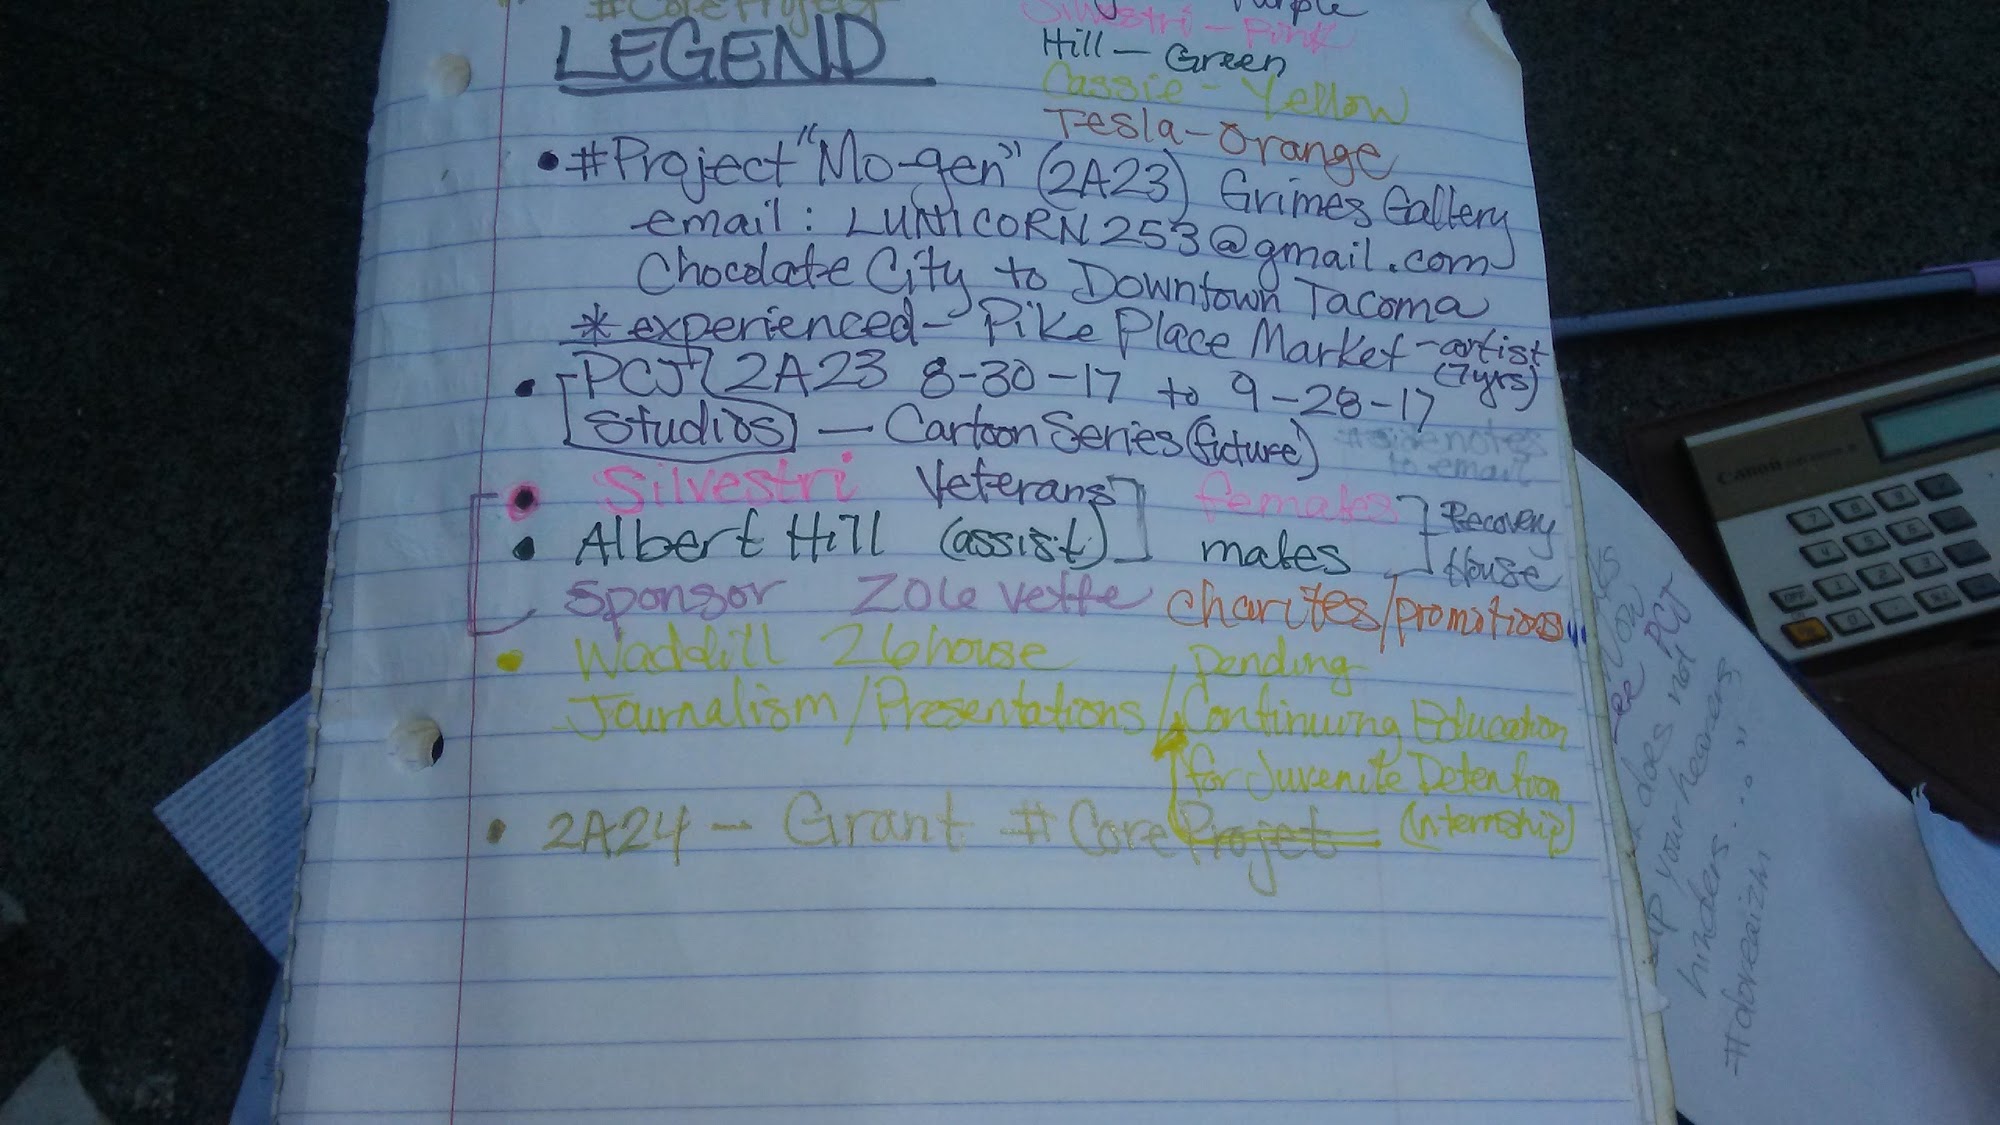 #CoreProject
Purple
Silvestri - Pink
LEGEND
Hill - Green
Cassie - Yellow
Tesla - Orange
• #Project "Mo-gen" (2A23) Grimes Gallery
email: LUNICORN253@gmail.com
Chocolate City to Downtown Tacoma
* experienced - Pike Place Market - artist
(7yrs)
• PCJ 2A23 8-30-17 to 9-28-17
Studios - Cartoon Series (future)
#sidenotes
to email
• Silvestri Veterans females Recovery
• Albert Hill (assist) males House
Sponsor Zoe vette charites/promotions
• Waddill 26house pending
Journalism/Presentations/Continuing Education
for Juvenile Detention
(Internship)
• 2A24 - Grant #CoreProjet
Canon
PCJ
does not
your hearers
hinders..."